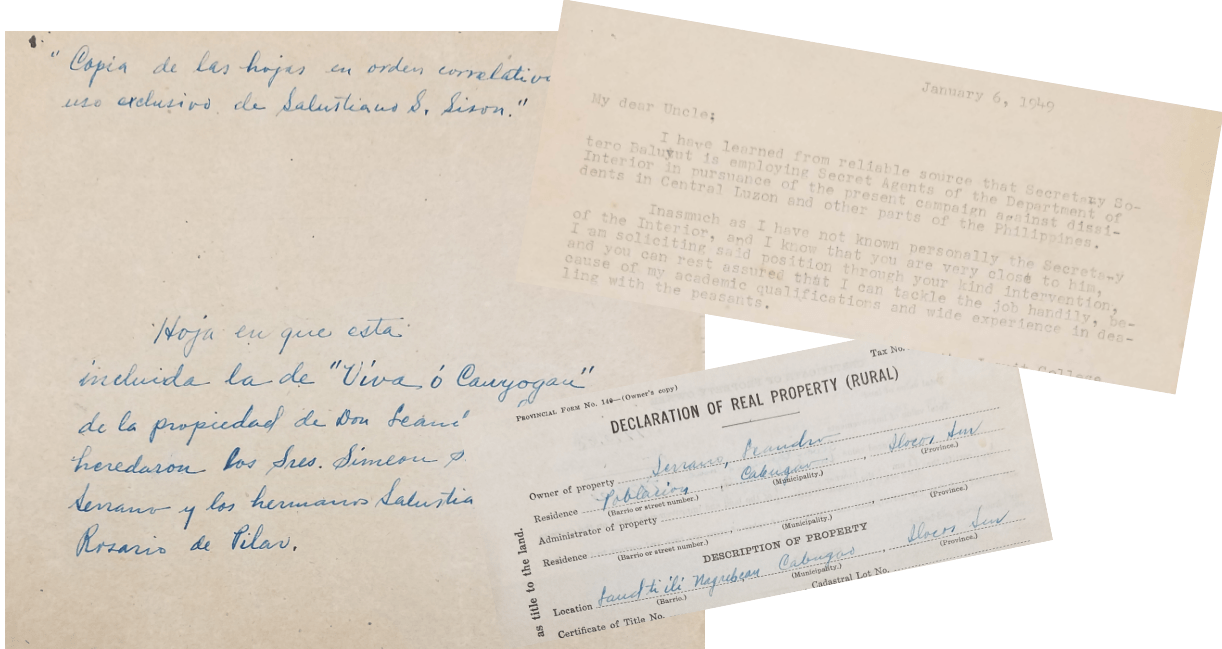 "Copia de las hojas en orden correlativo
uso exclusivo de Salustiano S. Sison."
Hoja en que esta
incluida la de "Viva ó Cauyogan"
de la propiedad de Don
heredaron los Sres. Simeon S.
Serrano y los hermanos Salustia
Rosario de Pilar.
January 6, 1949
My dear Uncle:
I have learned from reliable source that Secretary So-
tero Baluyut is employing Secret Agents of the Department of
Interior in pursuance of the present campaign against dissi-
dents in Central Luzon and other parts of the Philippines.
Inasmuch as I have not known personally the Secretary
of the Interior, and I know that you are very close to him,
I am soliciting said position through your kind intervention,
and you can rest assured that I can tackle the job handily, be-
cause of my academic qualifications and wide experience in des-
ling with the peasants.
College
Tax No.
PROVINCIAL FORM No. 149—(Owner's copy)
DECLARATION OF REAL PROPERTY (RURAL)
Owner of property Serrano, Leandro
Residence Poblacion, Cabugao, Ilocos Sur
(Barrio or street number.) (Municipality.) (Province.)
Administrator of property
Residence
(Barrio or street number.) (Municipality.) (Province.)
DESCRIPTION OF PROPERTY
Location Nagrebcan Cabugao, Ilocos Sur
(Barrio.) (Municipality.) (Province.)
Certificate of Title No. Cadastral Lot No.
as title to the land.